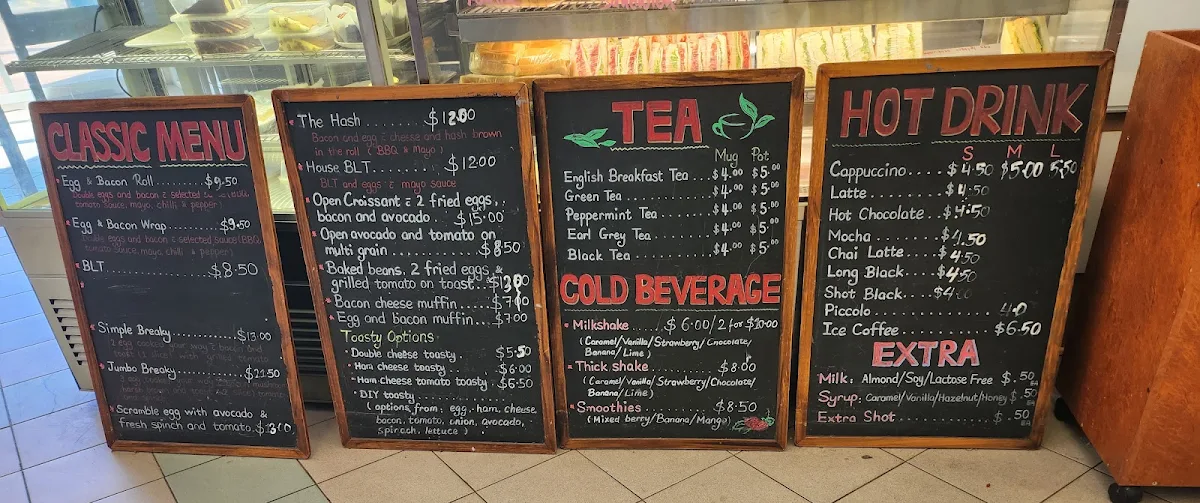 CLASSIC MENU
Egg & Bacon Roll ....... $9.50
Double eggs and bacon & selected
tomato sauce, mayo, chilli & pepper)
Egg & Bacon Wrap ..... $9.50
Double eggs and bacon & selected sauce (BBQ,
tomato sauce, mayo, chilli & pepper)
BLT .................. $8.50
Simple Breaky ............ $13.00
Jumbo Breaky ............ $21.50
Scramble egg with avocado &
fresh spinch and tomato. $13.00
The Hash ............ $12.00
Bacon and egg & cheese and hash brown
in the roll (BBQ & Mayo)
House BLT ............ $12.00
BLT and eggs & mayo sauce
Open Croissant & 2 fried eggs,
bacon and avocado .... $15.00
Open avocado and tomato on
multi grain ............ $8.50
Baked beans, 2 fried eggs &
grilled tomato on toast.
Bacon cheese muffin .... $7.00
Egg and bacon muffin ... $7.00
Toasty Options
Double cheese toasty ..... $5.50
Ham cheese toasty ........ $6.00
Ham cheese tomato toasty . $6.50
DIY toasty ...............
(options from: egg, ham, cheese
bacon, tomato, onion, avocado,
spinach, lettuce)
TEA
Mug Pot
English Breakfast Tea ... $4.00 $5.00
Green Tea ............ $4.00 $5.00
Peppermint Tea ........ $4.00 $5.00
Earl Grey Tea ......... $4.00 $5.00
Black Tea ............ $4.00 $5.00
COLD BEVERAGE
Milkshake ..... $6.00/2 for $10.00
(Caramel/Vanilla/Strawberry/Chocolate/
Banana/Lime)
Thick shake ............ $8.00
(Caramel/Vanilla/Strawberry/Chocolate/
Banana/Lime)
Smoothies ............ $8.50
(Mixed berry/Banana/Mango)
HOT DRINK
S M L
Cappuccino ..... $4.50 $5.00 5.50
Latte ............ $4.50
Hot Chocolate ... $4.50
Mocha ............ $4.50
Chai Latte ....... $4.50
Long Black ...... $4.50
Shot Black .... $4.00
Piccolo ............ 4.0
Ice Coffee ............ $6.50
EXTRA
Milk: Almond/Soy/Lactose Free $.50
Syrup: Caramel/Vanilla/Hazelnut/Honey $.50
EA
Extra Shot ............ $.50
EA